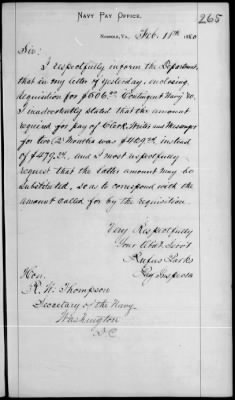 265
NAVY PAY OFFICE.
Norfolk, Va., Feb. 11th 1880
Sir:
I respectfully inform the Department,
that in my letter of yesterday, enclosing
requisition for $606.22 Contingent Navy '80,
I inadvertently stated that the amount
required for pay of Clerk, Writer and Messenger
for two (2) Months was $429.22 instead
of $479.22, and I most respectfully
request that the latter amount may be
substituted, so as to correspond with the
amount called for by the requisition.
Very Respectfully
Your Obdt. Servt
Rufus Parks
Pay Inspector
Hon.
R. W. Thompson
Secretary of the Navy
Washington
D.C.